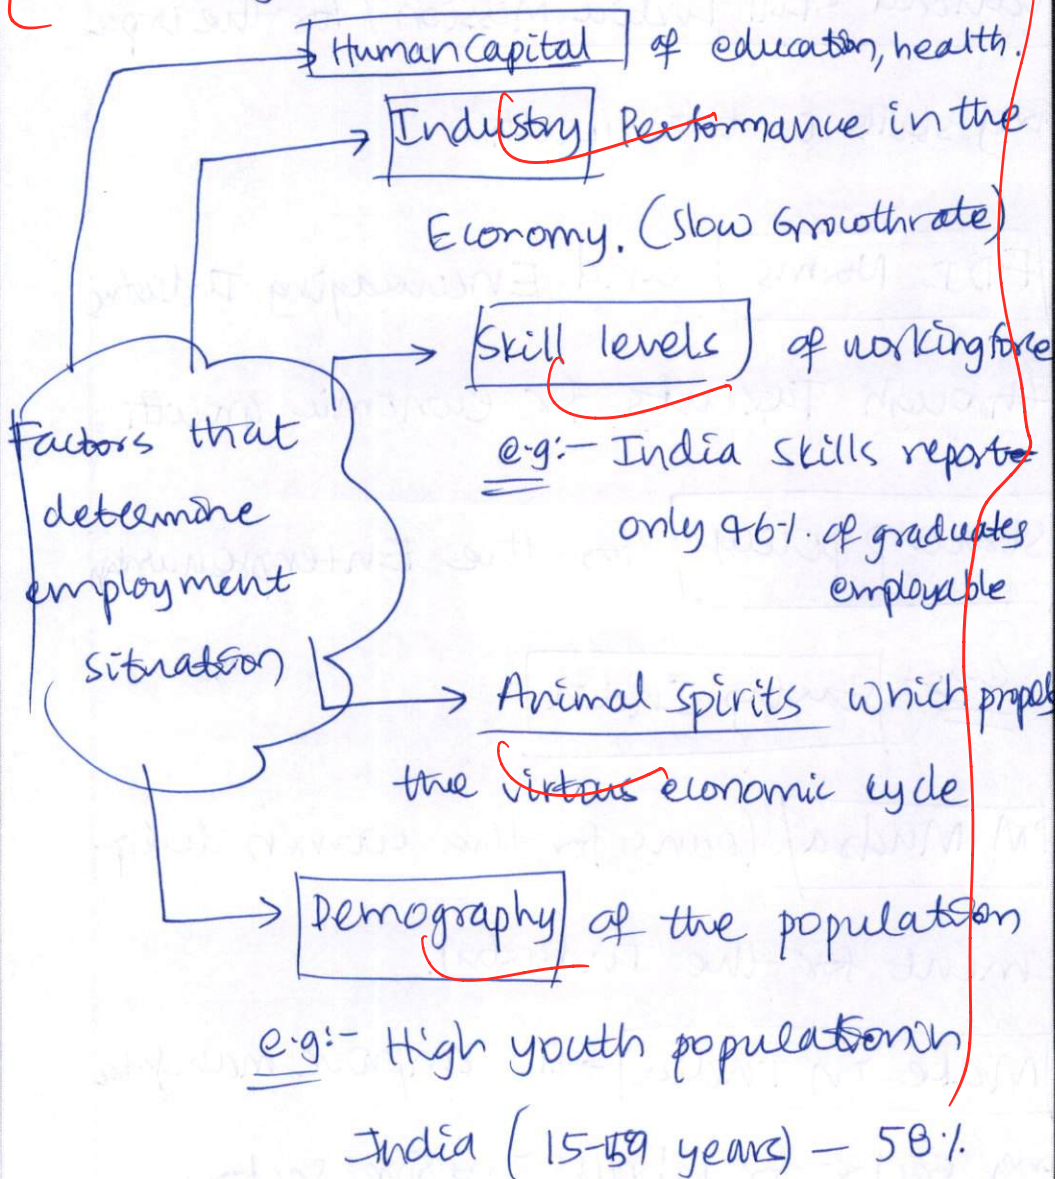 Human Capital of education, health.
Industry Performance in the
Economy. (Slow Growth rate)
Skill levels of working force
e.g:- India Skills report
only 46%. of graduates
employable
Factors that
determine
employment
situation
Animal spirits which propels
the virtous economic cycle
Demography of the population
e.g:- High youth population in
India (15-59 years) - 58%